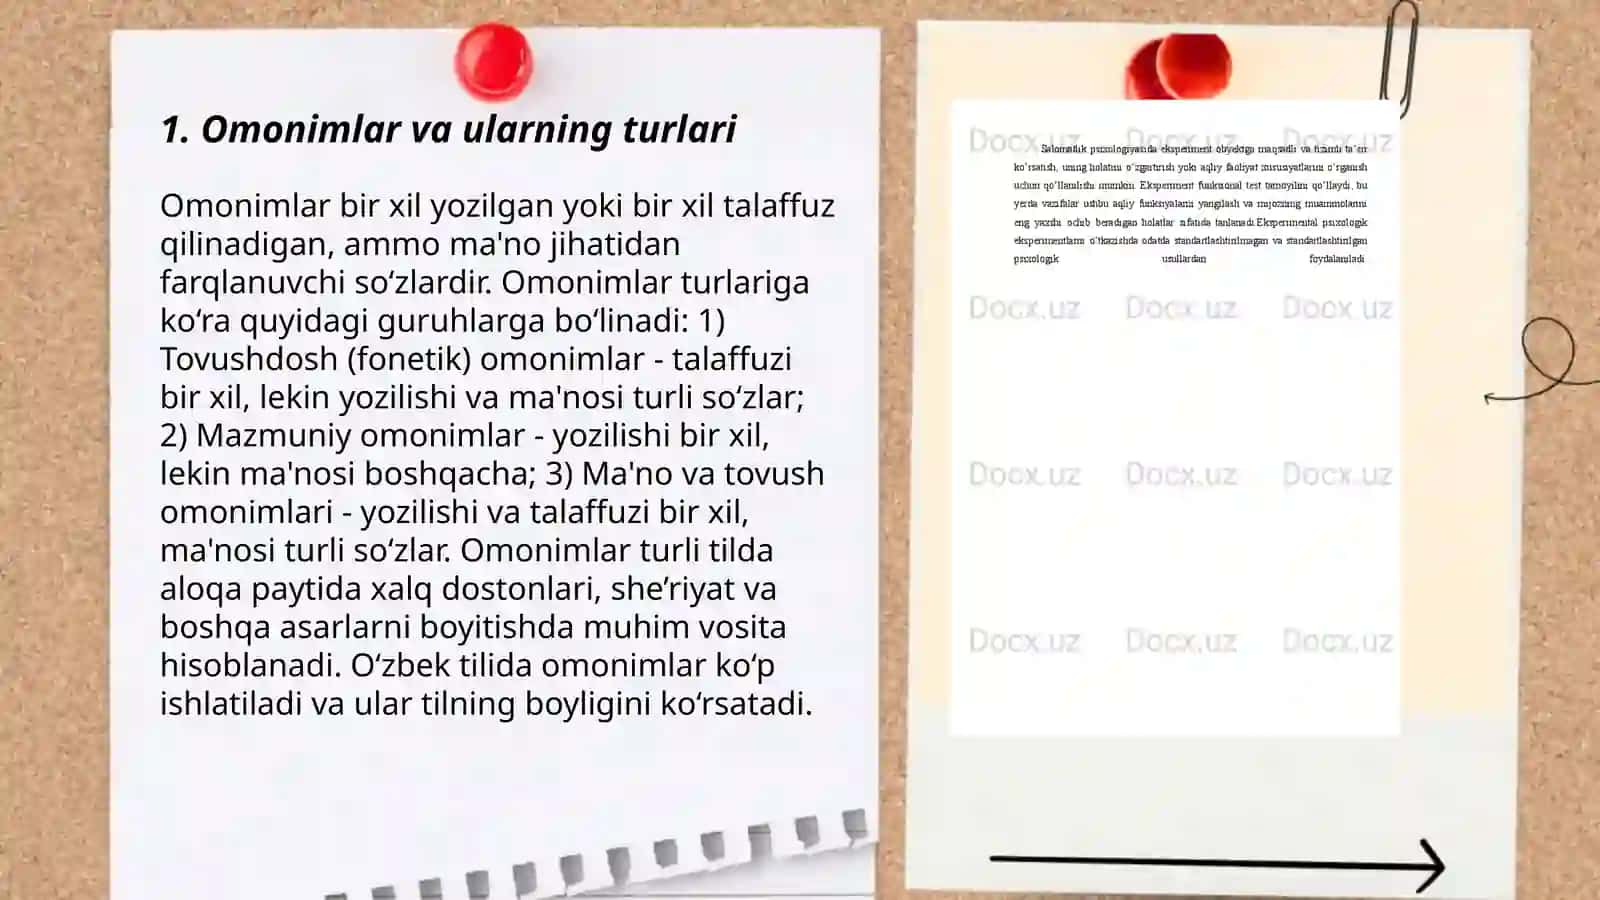 1. Omonimlar va ularning turlari
Omonimlar bir xil yozilgan yoki bir xil talaffuz
qilinadigan, ammo ma'no jihatidan
farqlanuvchi so‘zlardir. Omonimlar turlariga
ko‘ra quyidagi guruhlarga bo‘linadi: 1)
Tovushdosh (fonetik) omonimlar - talaffuzi
bir xil, lekin yozilishi va ma'nosi turli so‘zlar;
2) Mazmuniy omonimlar - yozilishi bir xil,
lekin ma'nosi boshqacha; 3) Ma'no va tovush
omonimlari - yozilishi va talaffuzi bir xil,
ma'nosi turli so‘zlar. Omonimlar turli tilda
aloqa paytida xalq dostonlari, she’riyat va
boshqa asarlarni boyitishda muhim vosita
hisoblanadi. O‘zbek tilida omonimlar ko‘p
ishlatiladi va ular tilning boyligini ko‘rsatadi.
Docx.uz Docx.uz Docx.uz
psixologiyasida eksperiment obyektga maqsadli va tizimli ta’sir
ko’rsatish, uning holatini o’zgartirish yoki aqliy faoliyat xususiyatlarini o’rganish
uchun qo’llanilishi mumkin. Eksperiment funksional test tamoyilini qo’llaydi, bu
yerda vazifalar ushbu aqliy funksiyalarni yangilash va mijozning muammolarini
eng yaxshi ochib beradigan holatlar sifatida tanlanadi.Eksperimental psixologik
eksperimentlarni o’tkazishda odatda standartlashtirilmagan va standartlashtirilgan
psixologik usullardan foydalaniladi
Docx.uz Docx.uz Docx.uz
Docx.uz Docx.uz Docx.uz
Docx.uz Docx.uz Docx.uz